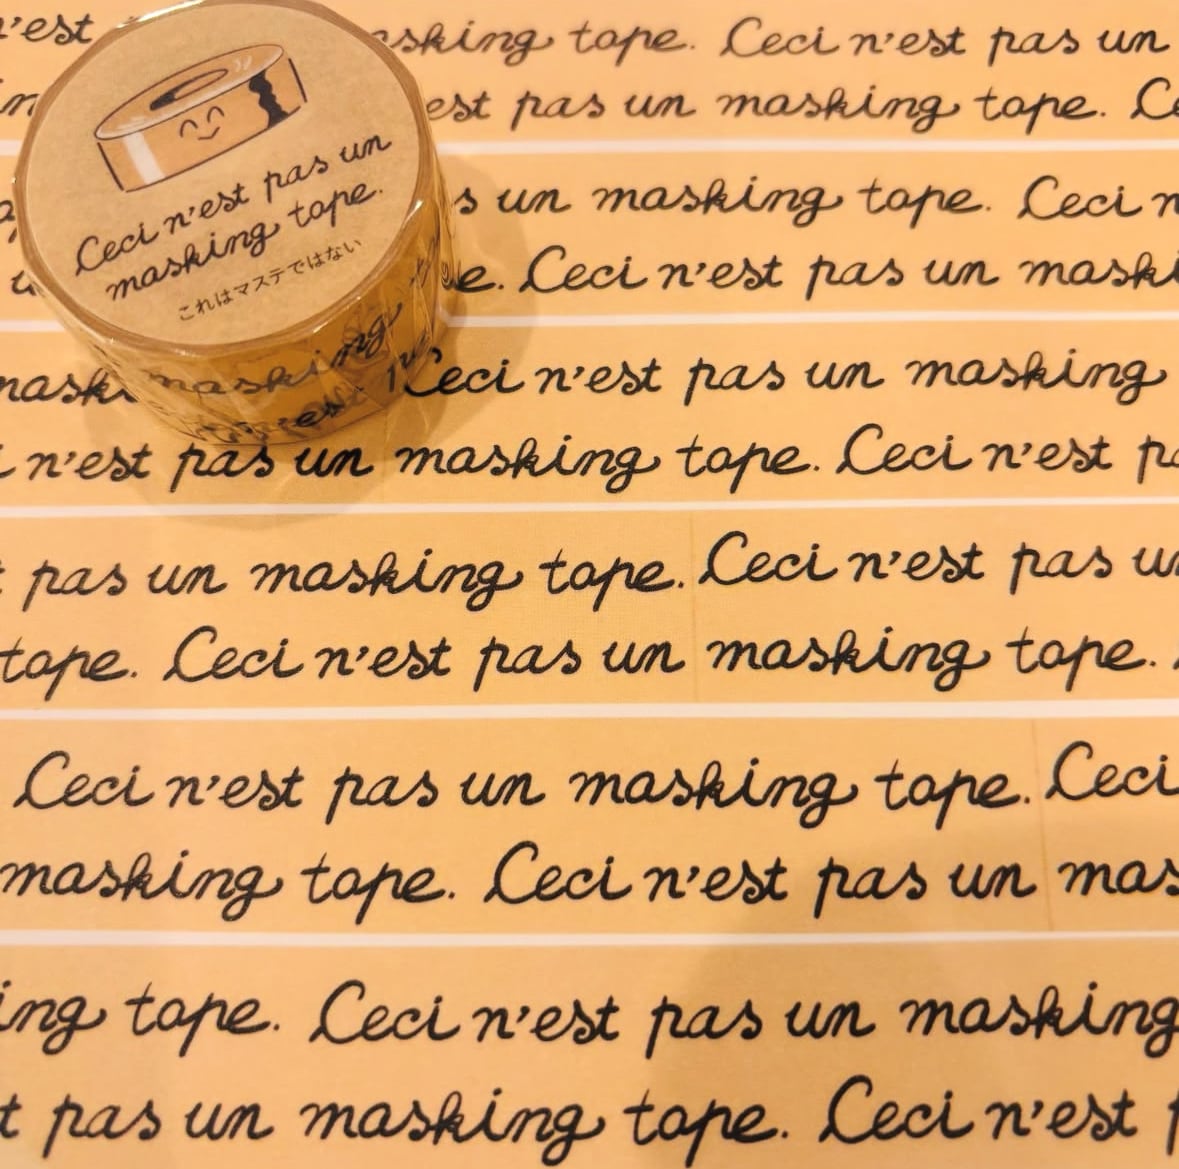 n'est
masking tape. Ceci n'est pas un
est pas un masking tape. Ce
s un masking tape. Ceci n
e. Ceci n'est pas un maski
Ceci n'est pas un
masking tape.
これはマステではない
masking
mask
Ceci n'est pas un masking
i n'est pas un masking tape. Ceci n'est pa
t pas un masking tape. Ceci n'est pas un
tape. Ceci n'est pas un masking tape.
Ceci n'est pas un masking tape. Ceci
masking tape. Ceci n'est pas un mas
ing tape. Ceci n'est pas un masking
t pas un masking tape. Ceci n'est p